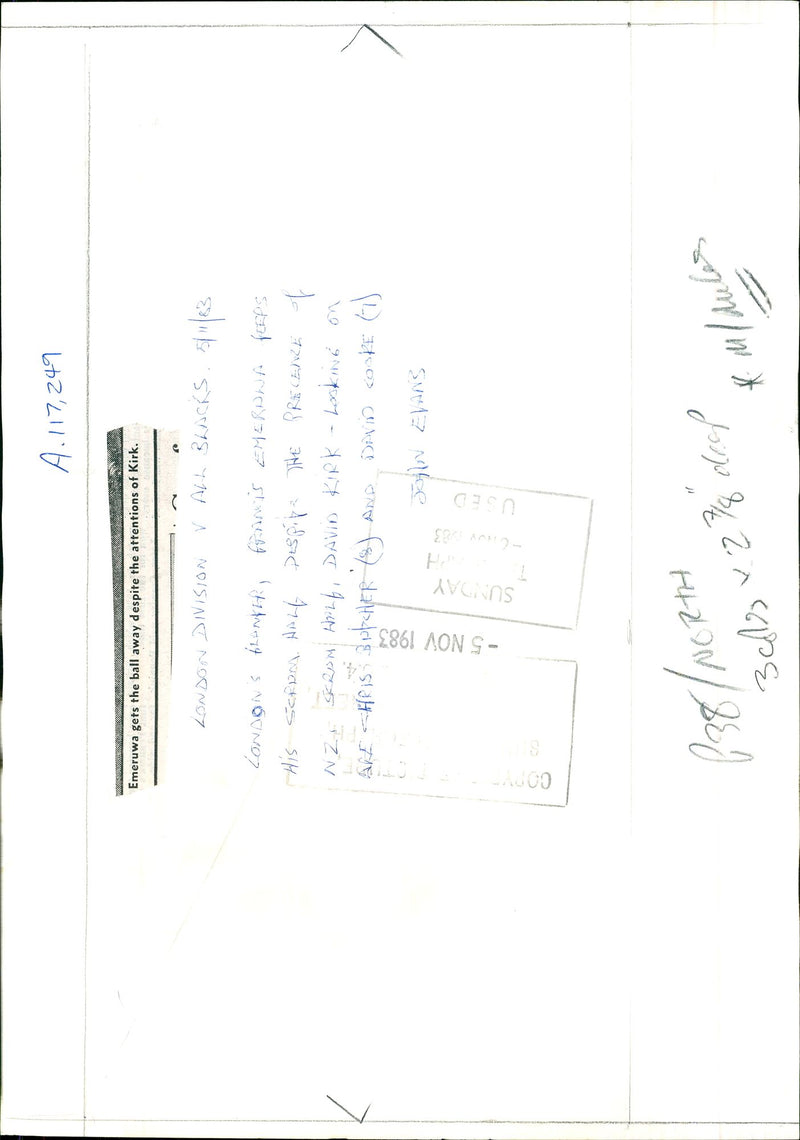 A.117,249
Emeruwa gets the ball away despite the attentions of Kirk.
LONDON DIVISION V ALL BLACKS. 5/11/83
LONDON'S FLANKER, FRANCIS EMERUWA FEEDS
HIS SCRUM HALF DESPITE THE PRECENCE OF
NZ'S SCRUM HALF, DAVID KIRK - LOOKING ON
ARE CHRIS BUTCHER (8) AND DAVID COOKE (7)
JOHN EVANS
SUNDAY
-6 NOV 1983
USED
-5 NOV 1983
COPYRIGHT PICTURE
P38/NORTH
3 cols x 2 7/8" deep